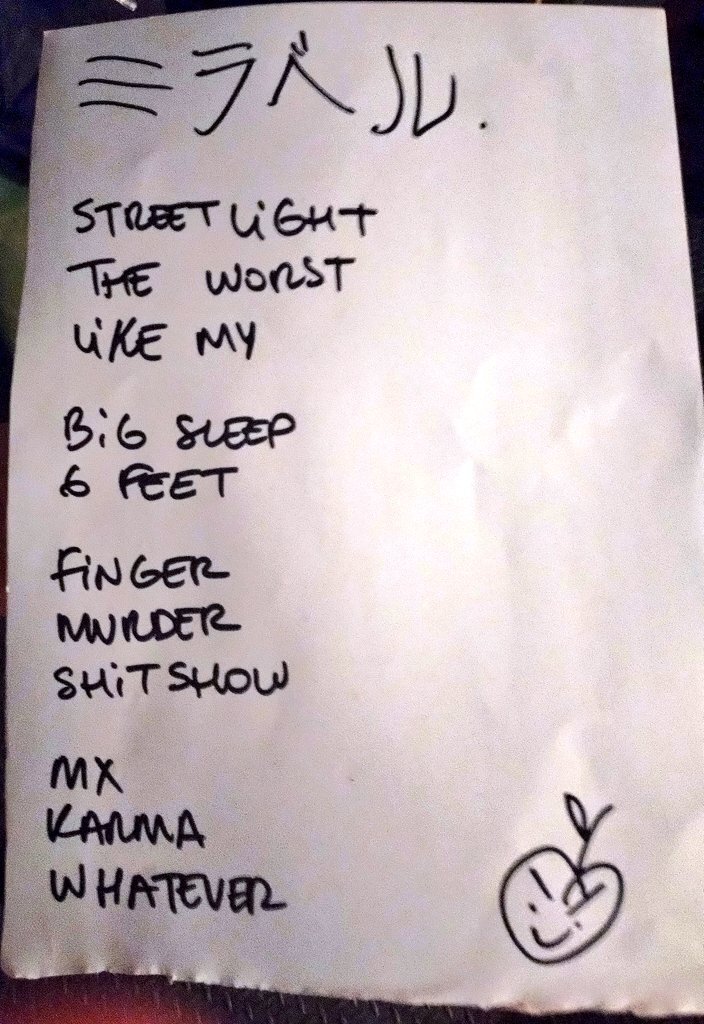 ミラベル.
STREETLIGHT
THE WORST
LIKE MY
BIG SLEEP
6 FEET
FINGER
MURDER
SHITSHOW
MX
KARMA
WHATEVER